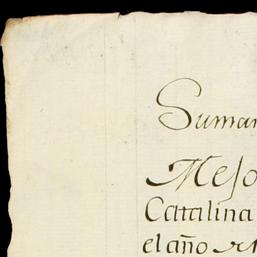 Sumar
Meso
Catalina
el año